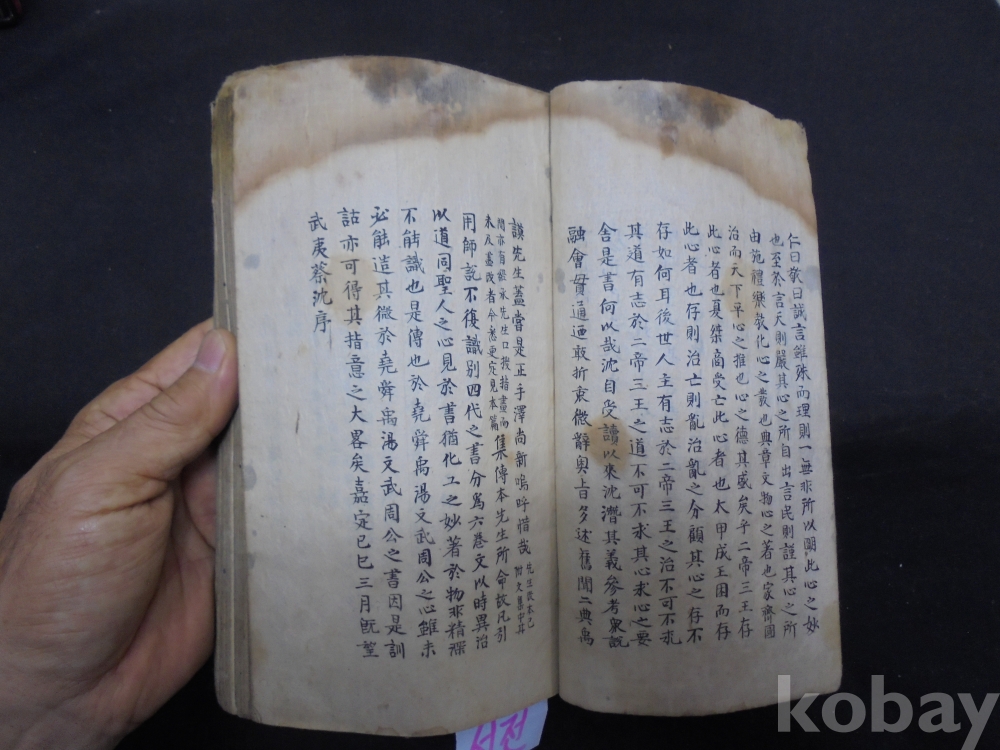 仁曰敬曰誠言雖殊而理則一無非所以明此心之妙
也至於言天則嚴其心之所自出言民則謹其心之所
由施禮樂敎化心之發也典章文物心之著也家齊國
治而天下平心之推也心之德其盛矣乎二帝三王存
此心者也夏桀商受亡此心者也太甲成王困而存
此心者也存則治亡則亂治亂之分顧其心之存不
存如何耳後世人主有志於二帝三王之治不可不求
其道有志於二帝三王之道不可不求其心求心之要
舍是書何以哉沈自受讀以來沈潛其義參考衆說
融會貫通迺敢折衷微辭奧旨多述舊聞二典禹
謨先生蓋嘗是正手澤尚新嗚呼惜哉 先生改本已附文集中其
間亦有經承先生口授指畫而未及盡改者今悉更定見本篇 集傳本先生所命故凡引
用師說不復識別四代之書分爲六卷文以時異治
以道同聖人之心見於書猶化工之妙著於物非精深
不能識也是傳也於堯舜禹湯文武周公之心雖未
必能造其微於堯舜禹湯文武周公之書因是訓
詁亦可得其指意之大畧矣嘉定己巳三月旣望
武夷蔡沈序
서전
kobay